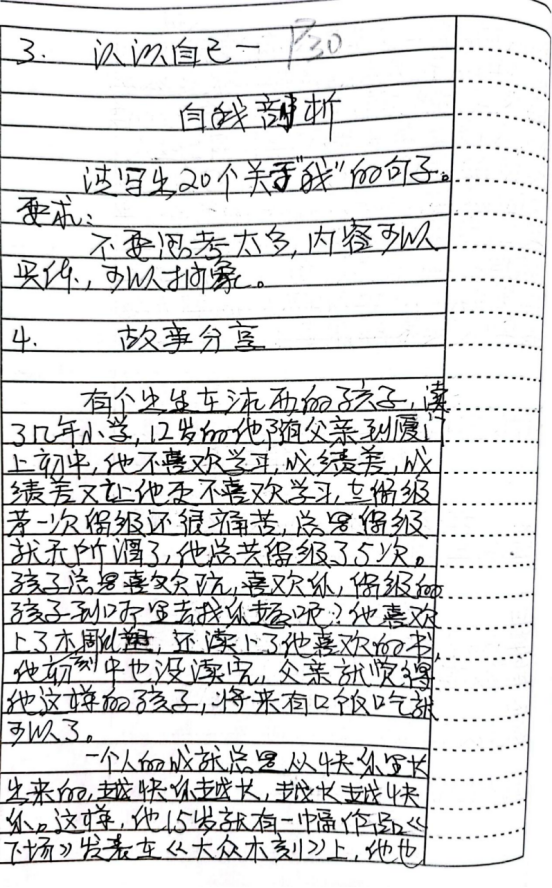 3. 认识自己一 P30
自我剖析
请写出20个关于"我"的句子。
要求:
不要思考太多,内容可以
具体,可以抽象。
4. 故事分享
有个出生在江西的孩子,读
了几年小学,12岁的他随父亲到厦门
上初中,他不喜欢学习,成绩差,成
绩差又让他更不喜欢学习,在留级
第一次留级还很痛苦,总是留级
就无所谓了,他总共留级了5次。
孩子总是喜欢玩,喜欢乐,留级的
孩子到哪里去找乐趣呢?他喜欢
上了木雕塑,还读上了他喜欢的书,
他初中也没读完,父亲就觉得
他这样的孩子,将来有口饭吃就
可以了。
一个人的成就总是从快乐里长
出来的,越快乐越长,越长越快
乐。这样,他15岁就有一幅作品《
下场》发表在《大众木刻》上,他也